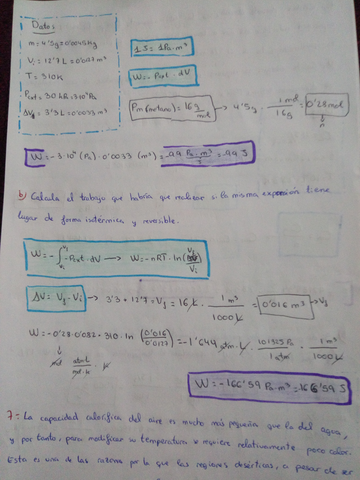 Datos:
m = 4'5g = 0'0045 Kg
Vi = 12'7 L = 0'0127 m³
T = 310K
Pext = 30 kPa = 3·10⁴ Pa
ΔV = 3'3 L = 0'0033 m³
1 J = 1 Pa · m³
W = - Pext · dV
Pm (metano) = 16 g/mol → 4'5g · 1 mol / 16 g = 0'28 mol
n
W = -3·10⁴ (Pa) · 0'0033 (m³) = -99 Pa·m³ = -99 J
b) Calcula el trabajo que habría que realizar si la misma expansión tiene
lugar de forma isotérmica y reversible.
W = - ∫ -Pext · dV → W = -nRT · ln Vf / Vi
ΔV = Vf - Vi → 3'3 + 12'7 = Vf = 16 L · 1 m³ / 1000 L = 0'016 m³ → Vf
W = -0'28 · 0'082 · 310 · ln (0'016 / 0'0127) = -1'644 atm·L · 101325 Pa / 1 atm · 1 m³ / 1000 L
mol atm·L / mol·K K
W = -166'59 Pa·m³ = 166'59 J
7= La capacidad calorífica del aire es mucho más pequeña que la del agua,
y por tanto, para modificar su temperatura se requiere relativamente poco calor.
Esta es una de las razones por la que las regiones desérticas, a pesar de ser